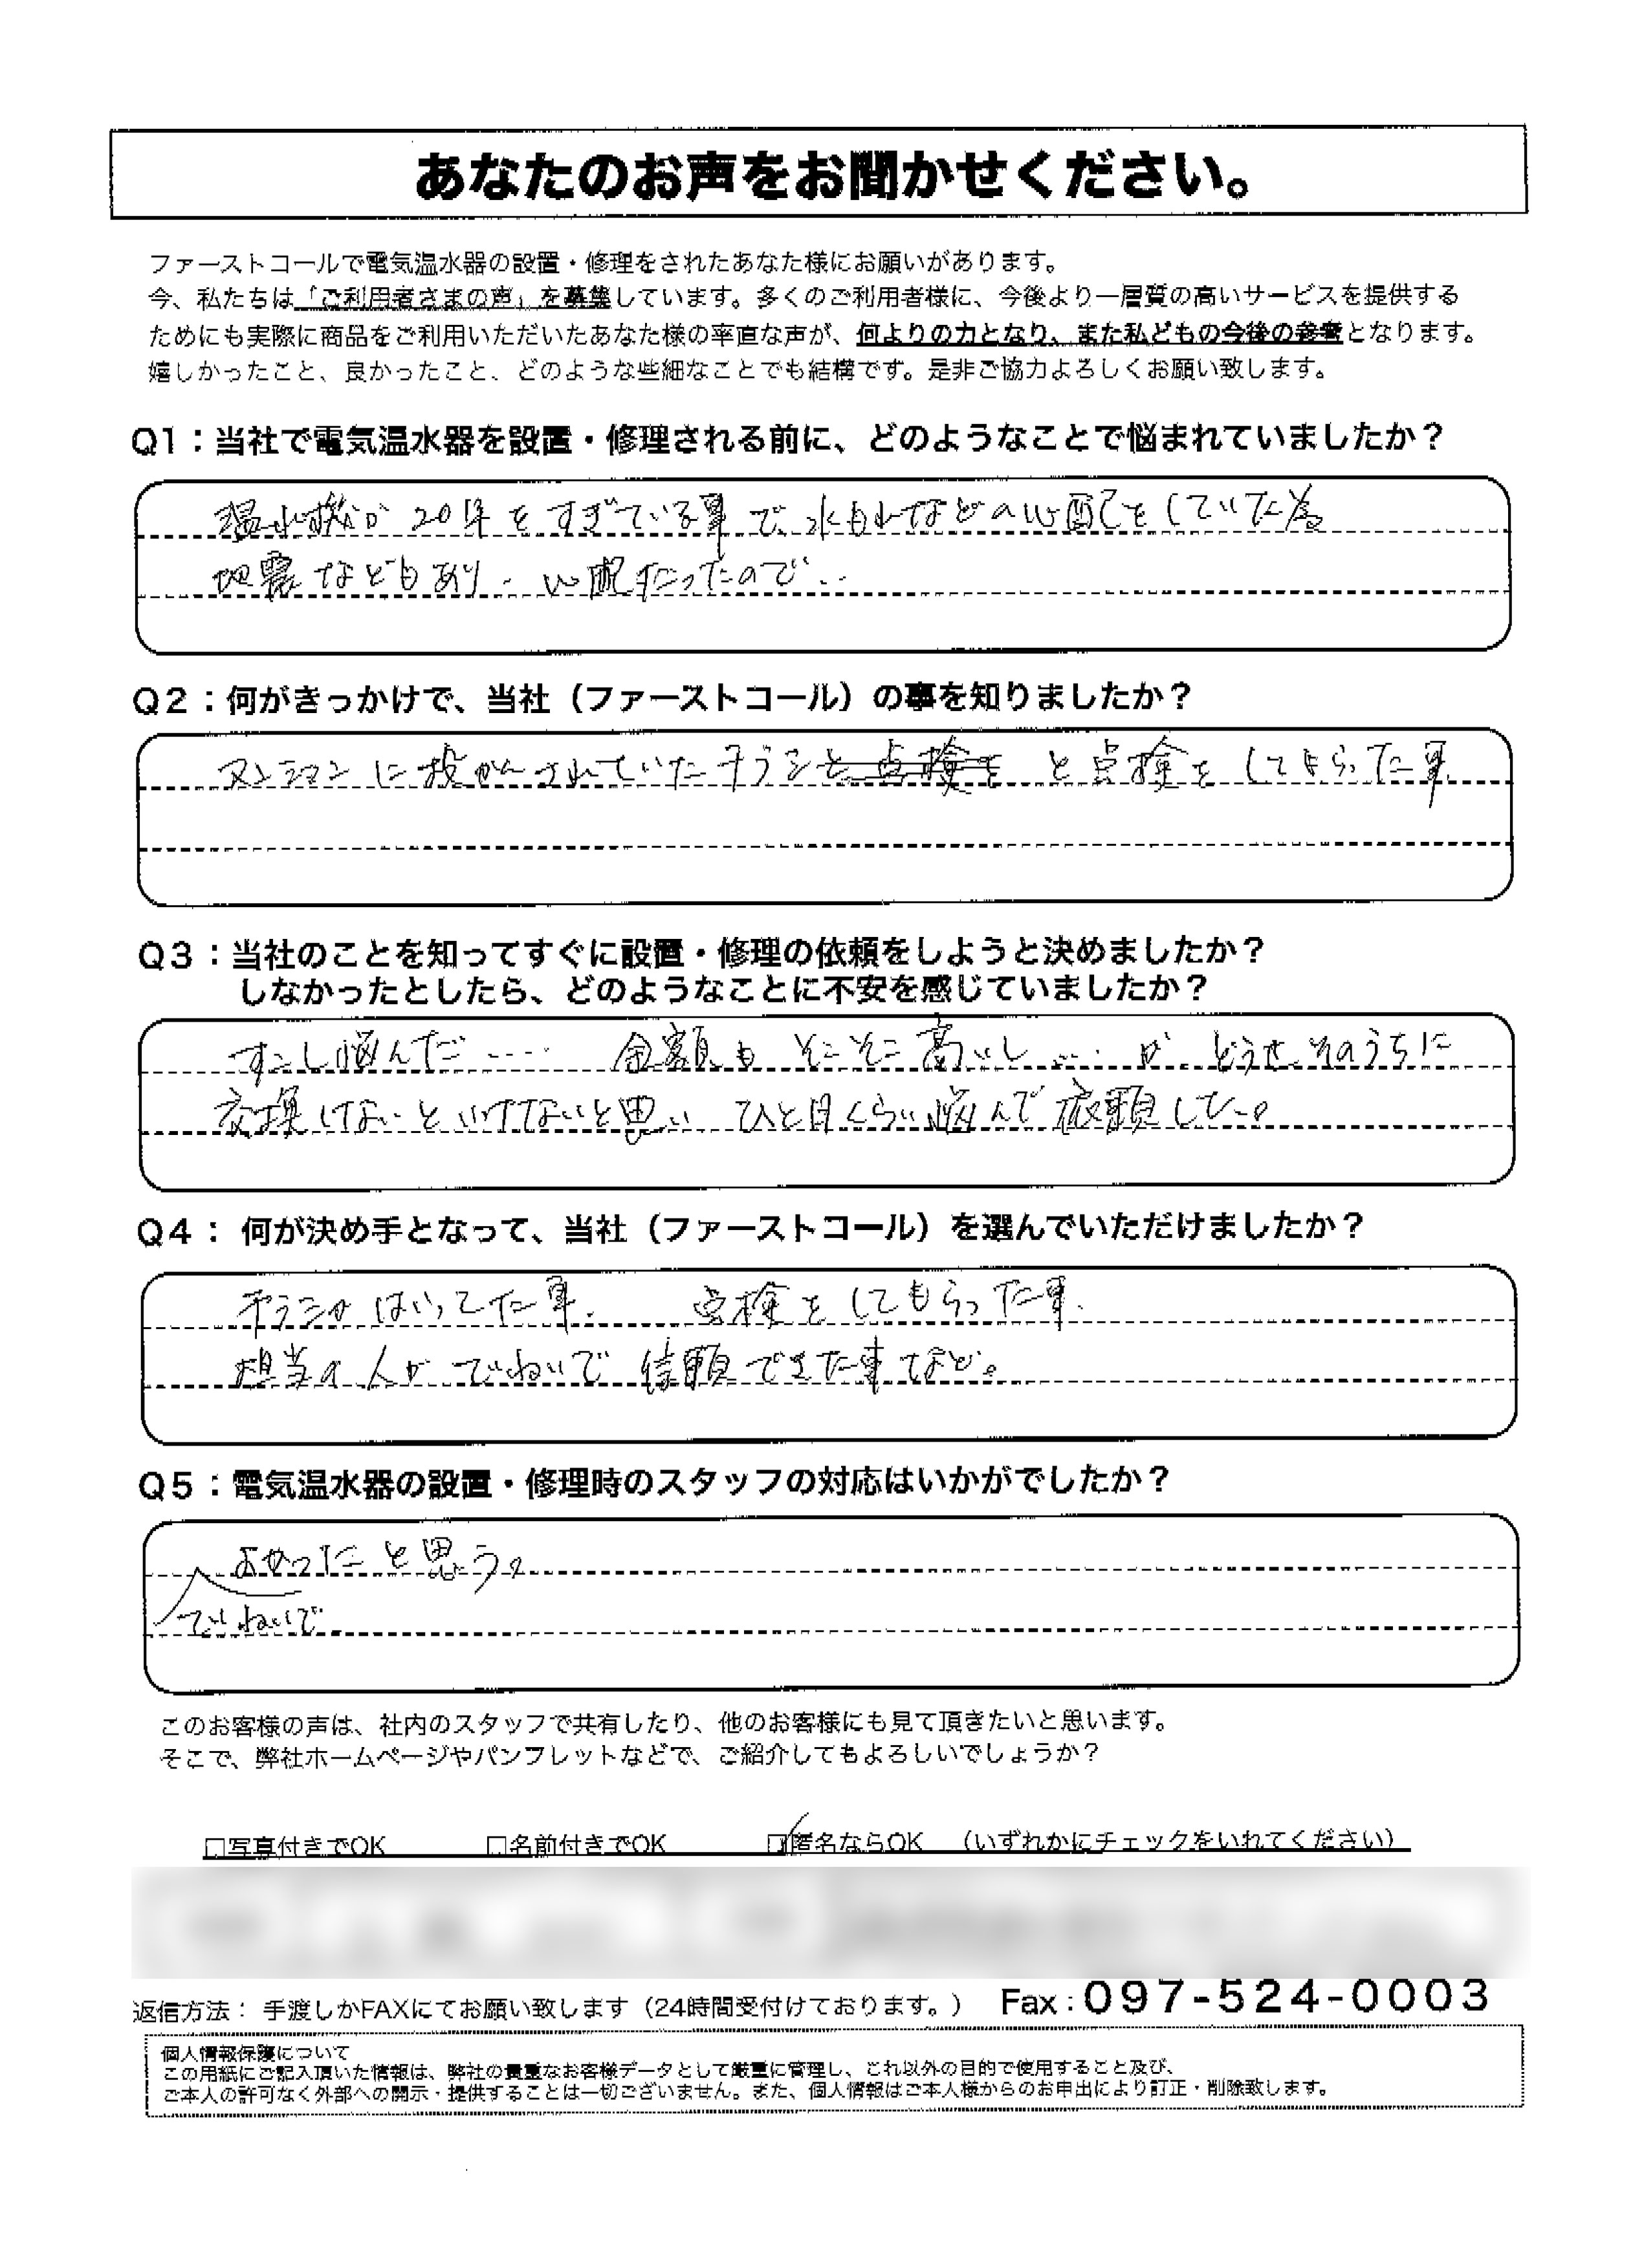 あなたのお声をお聞かせください。
ファーストコールで電気温水器の設置・修理をされたあなた様にお願いがあります。
今、私たちは「ご利用者さまの声」を募集しています。多くのご利用者様に、今後より一層質の高いサービスを提供する
ためにも実際に商品をご利用いただいたあなた様の率直な声が、何よりの力となり、また私どもの今後の参考となります。
嬉しかったこと、良かったこと、どのような些細なことでも結構です。是非ご協力よろしくお願い致します。
Q1：当社で電気温水器を設置・修理される前に、どのようなことで悩まれていましたか？
温水機が20年をすぎている事で、水もれなどの心配をしていた為
地震などもあり、心配だったので…
Q2：何がきっかけで、当社（ファーストコール）の事を知りましたか？
マンションに投かんされていたチラシと点検を と点検をしてもらった事
Q3：当社のことを知ってすぐに設置・修理の依頼をしようと決めましたか？
しなかったとしたら、どのようなことに不安を感じていましたか？
すこし悩んだ…… 金額もそこそこ高いし…… が、どうせそのうちに
交換しないといけないと思い ひと月くらい悩んで依頼した。
Q4： 何が決め手となって、当社（ファーストコール）を選んでいただけましたか？
チラシがはいってた事。 点検をしてもらった事。
担当の人が ていねいで 信頼できた事など。
Q5：電気温水器の設置・修理時のスタッフの対応はいかがでしたか？
よかったと思う。
ていねいで
このお客様の声は、社内のスタッフで共有したり、他のお客様にも見て頂きたいと思います。
そこで、弊社ホームページやパンフレットなどで、ご紹介してもよろしいでしょうか？
□写真付きでOK □名前付きでOK ☑匿名ならOK （いずれかにチェックをいれてください）
返信方法： 手渡しかFAXにてお願い致します（24時間受付けております。） Fax：097-524-0003
個人情報保護について
この用紙にご記入頂いた情報は、弊社の貴重なお客様データとして厳重に管理し、これ以外の目的で使用すること及び、
ご本人の許可なく外部への開示・提供することは一切ございません。また、個人情報はご本人様からのお申出により訂正・削除致します。